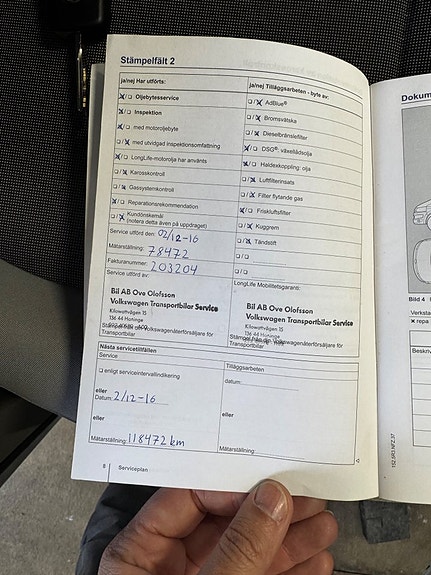 Stämpelfält 2
ja/nej Har utförts:
☒/☐ Oljebytesservice
☒/☐ Inspektion
☒/☐ med motoroljebyte
☐/☒ med utvidgad inspektionsomfattning
☒/☐ LongLife-motorolja har använts
☐/☒ Karosskontroll
☐/☒ Gassystemkontroll
☒/☐ Reparationsrekommendation
☐/☒ Kundönskemål
(notera detta även på uppdraget)
Service utförd den: 02/12-16
Mätarställning: 78472
Fakturanummer: 203204
Service utförd av:
Bil AB Ove Olofsson
Volkswagen Transportbilar Service
Kilowattvägen 15
136 44 Haninge
Stämpel från din Volkswagenåterförsäljare för
Transportbilar
ja/nej Tilläggsarbeten - byte av:
☐/☒ AdBlue®
☐/☒ Bromsvätska
☐/☒ Dieselbränslefilter
☒/☐ DSG®: växellådsolja
☒/☐ Haldexkoppling: olja
☐/☒ Luftfilterinsats
☐/☒ Filter flytande gas
☒/☐ Friskluftsfilter
☐/☒ Kuggrem
☐/☒ Tändstift
☐/☐
☐/☐
LongLife Mobilitetsgaranti:
Bil AB Ove Olofsson
Volkswagen Transportbilar Service
Kilowattvägen 15
136 44 Haninge
Stämpel från din Volkswagenåterförsäljare för
Transportbilar
Nästa servicetillfällen
Service
☐ enligt serviceintervallindikering
eller
Datum: 2/12-16
eller
Mätarställning: 118472 km
Tilläggsarbeten
datum:
eller
Mätarställning:
8 Serviceplan
Dokum
Bild 4
Verksta
× repa
Beskriv
152.5R3.NFZ.37